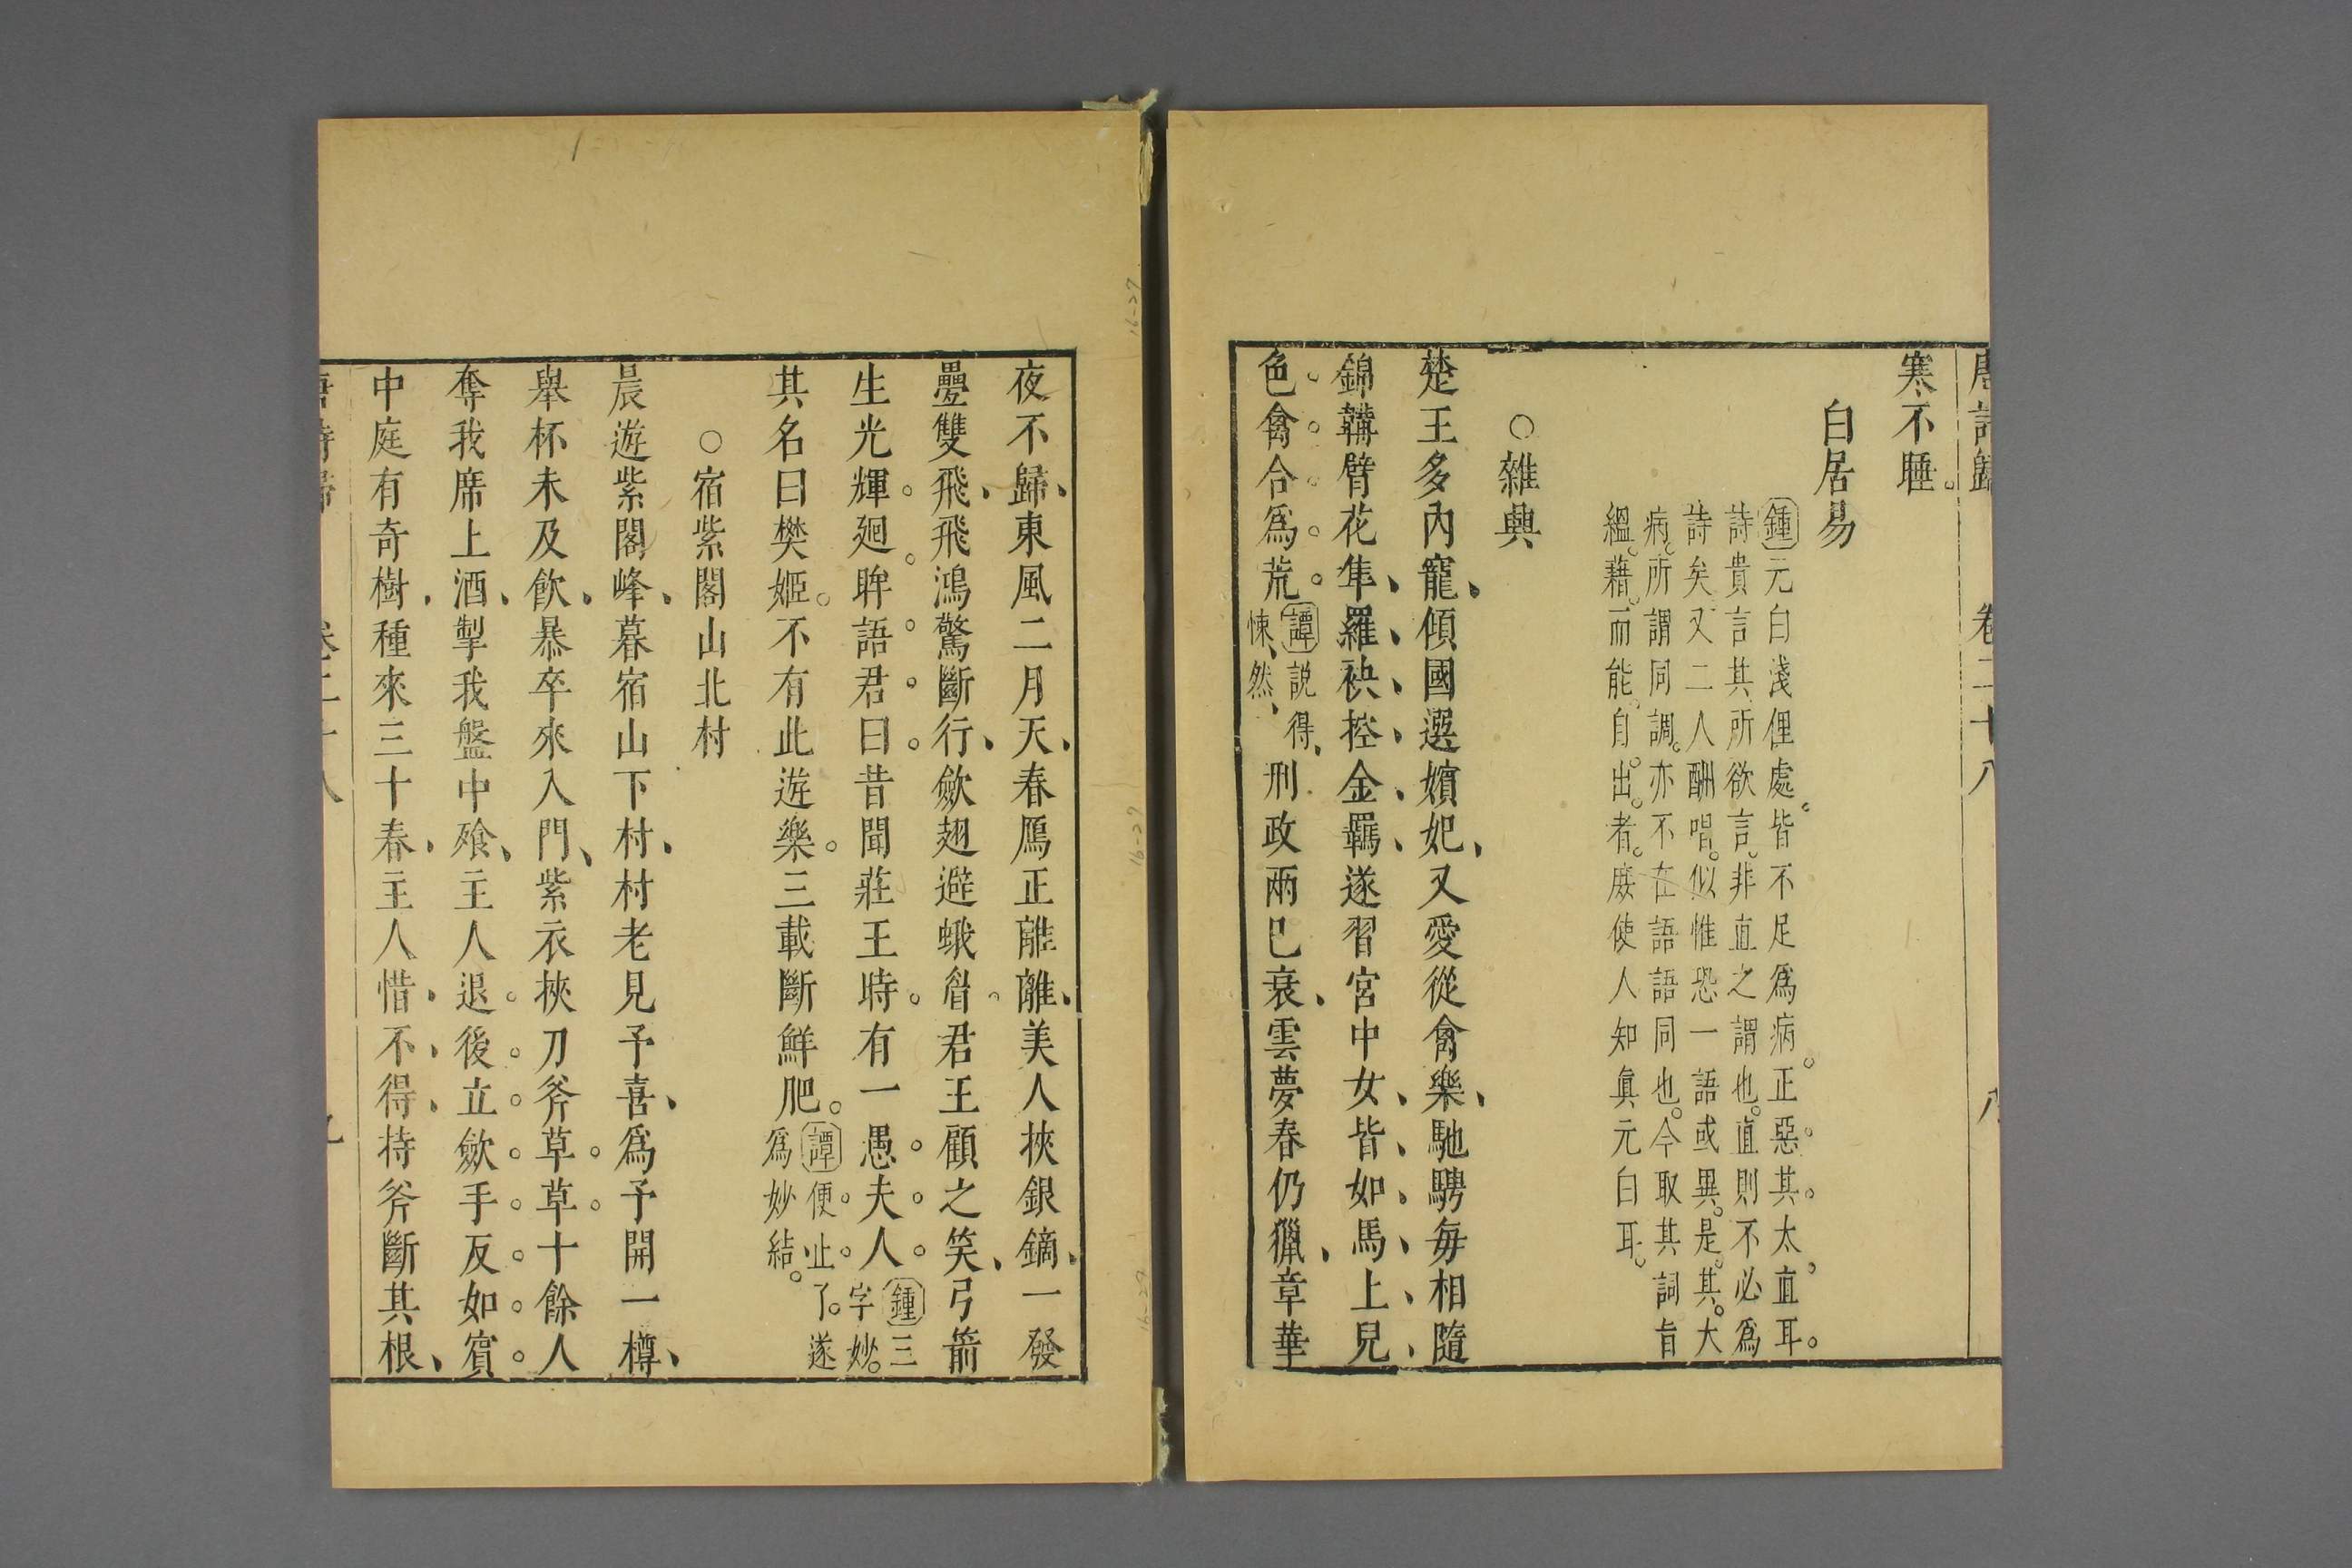 唐詩歸 卷二十八 八
寒不睡。
白居易
鍾元白淺俚處。皆不足爲病。正惡其太直耳。
詩貴言其所欲言。非直之謂也。直則不必爲
詩矣。又二人酬唱。似惟恐一語或異。是其大
病。所謂同調。亦不在語語同也。今取其詞旨
縕藉。而能自出者。庶使人知眞元白耳。
○雜興
楚王多內寵、傾國選嬪妃、又愛從禽樂、馳騁每相隨
錦韝臂花隼、羅袂控金羈、遂習宮中女、皆如馬上兒、
色禽合爲荒。譚說得、悚然、刑政兩已衰、雲夢春仍獵、章華
夜不歸、東風二月天、春鴈正離離、美人挾銀鏑、一發
疊雙飛、飛鴻驚斷行、斂翅避蛾眉。君王顧之笑、弓箭
生光輝。廻眸語君曰。昔聞莊王時。有一愚夫人。鍾三字妙。
其名曰樊姬。不有此遊樂。三載斷鮮肥。譚便止了。遂爲妙結。
○宿紫閣山北村
晨遊紫閣峰、暮宿山下村、村老見予喜、爲予開一樽、
舉杯未及飲、暴卒來入門、紫衣挾刀斧草草十餘人
奪我席上酒、掣我盤中飱、主人退後立。斂手反如賓。
中庭有奇樹、種來三十春、主人惜不得、持斧斷其根、
唐詩歸 卷二十八 九